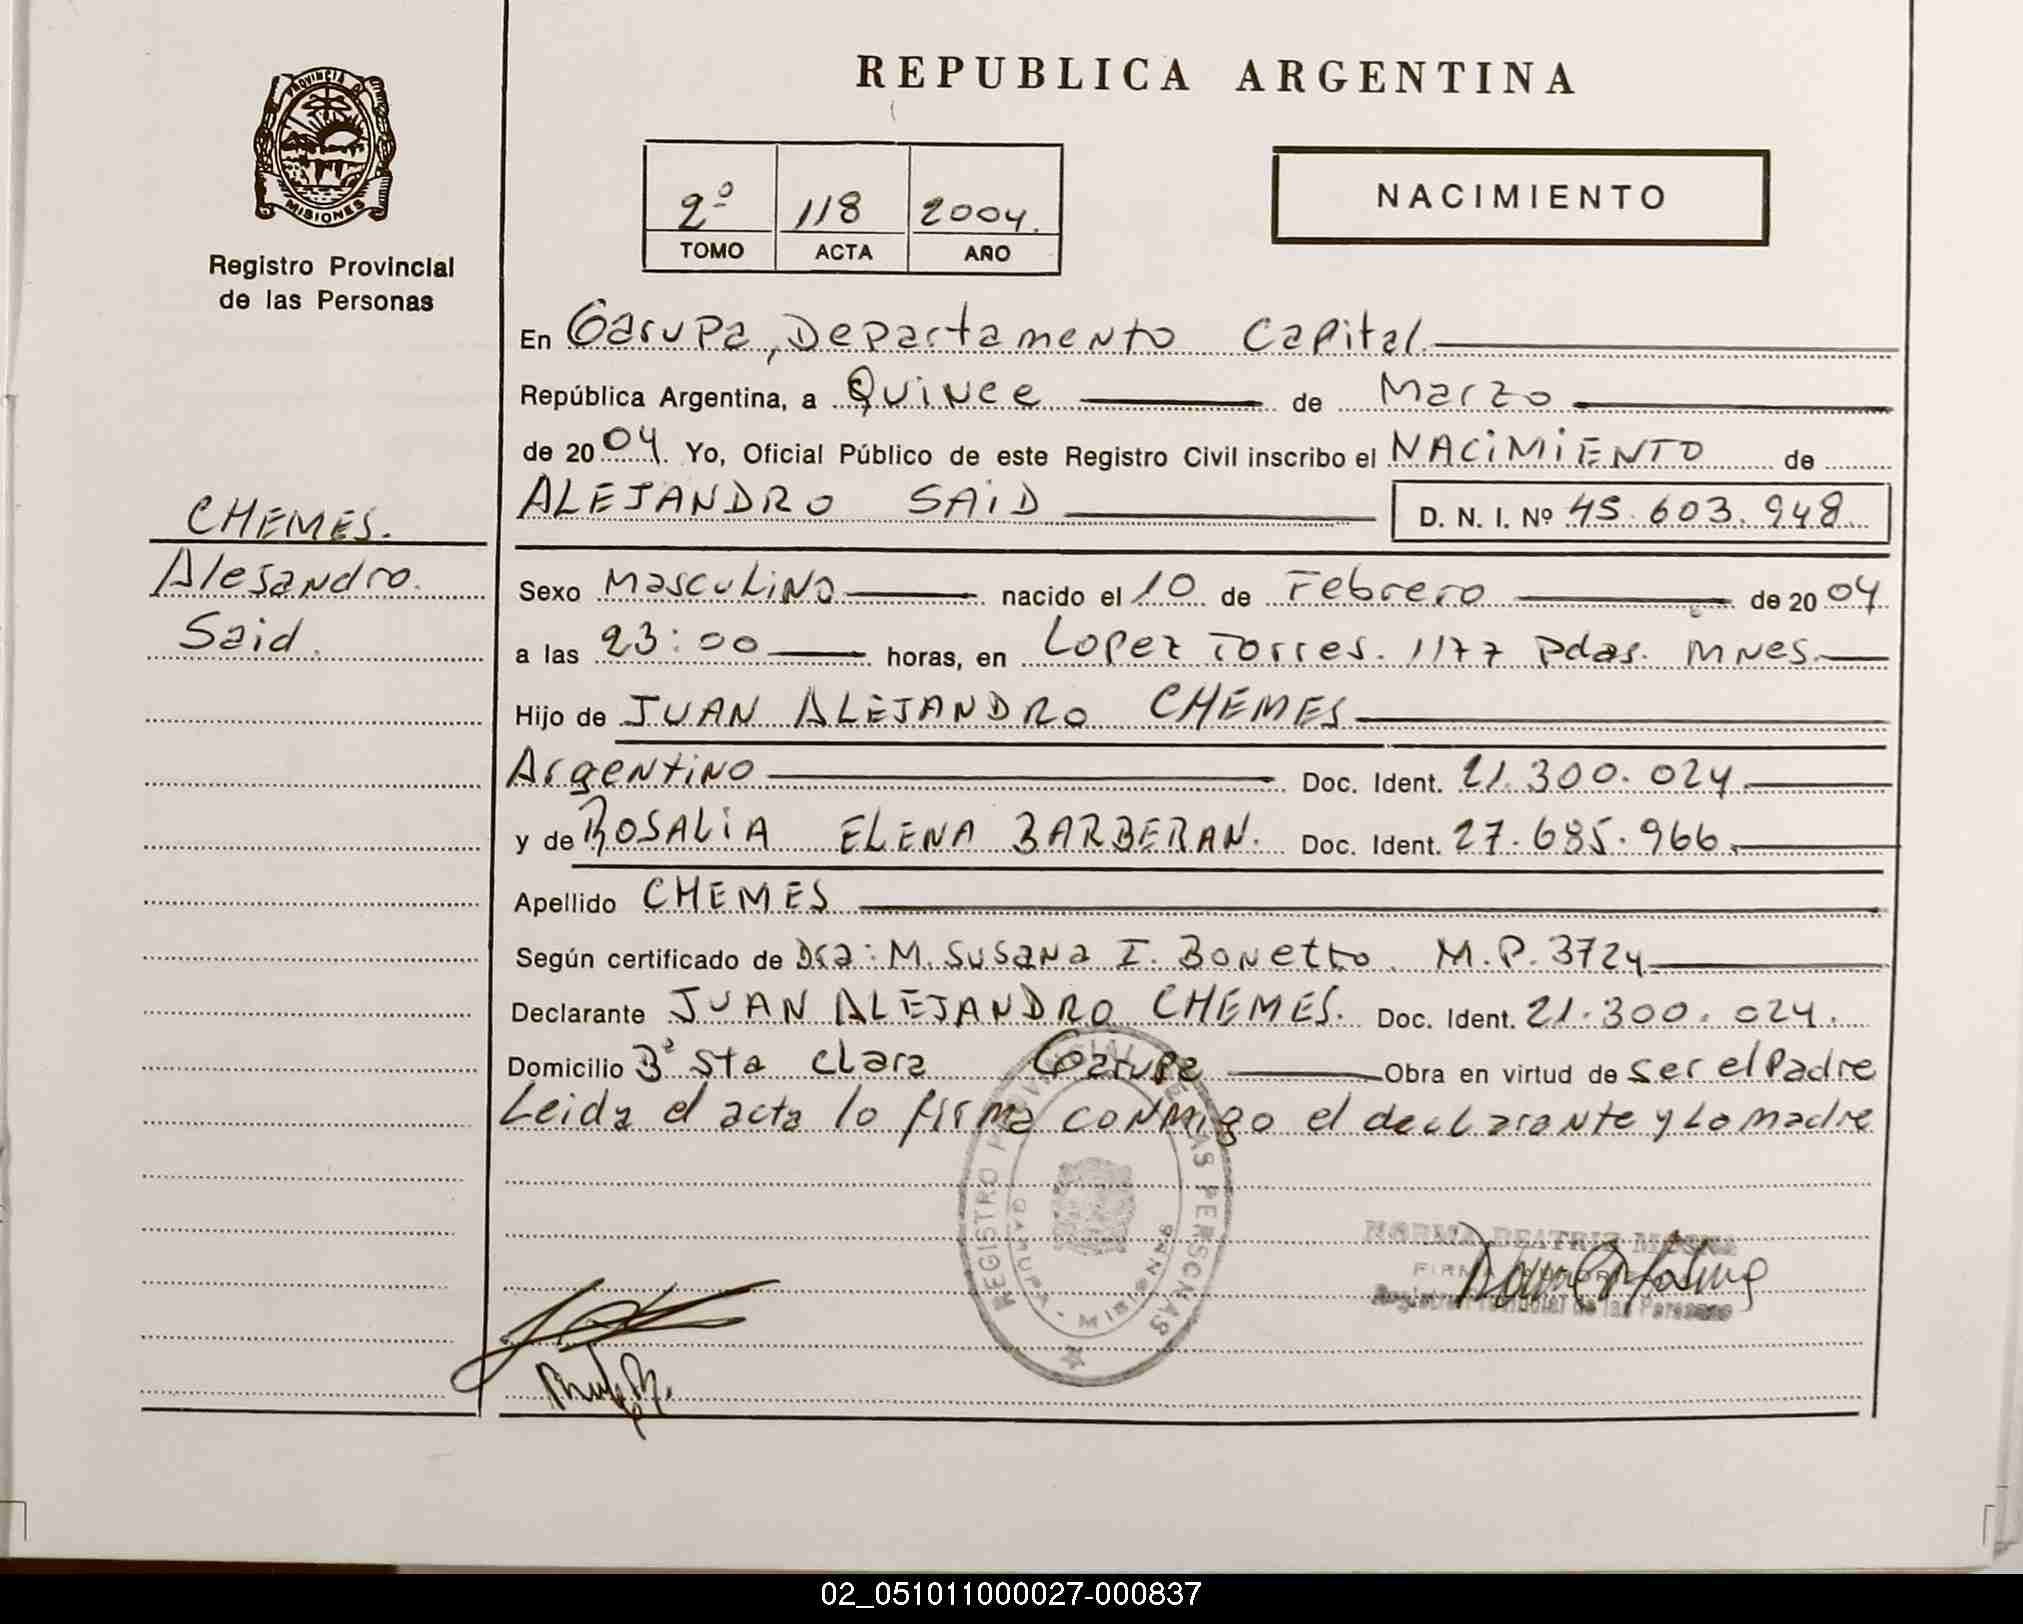 PROVINCIA DE
MISIONES
Registro Provincial
de las Personas
CHEMES.
Alejandro.
Said.
REPUBLICA ARGENTINA
2º 118 2004.
TOMO ACTA AÑO
NACIMIENTO
En Garupa, Departamento Capital
República Argentina, a Quince de Marzo
de 2004. Yo, Oficial Público de este Registro Civil inscribo el NACIMIENTO de
ALEJANDRO SAID D. N. I. Nº 45.603.948
Sexo Masculino nacido el 10 de Febrero de 2004
a las 23:00 horas, en Lopez Torres. 1177 Pdas. Mnes.
Hijo de JUAN ALEJANDRO CHEMES
Argentino Doc. Ident. 21.300.024
y de ROSALIA ELENA BARBERAN. Doc. Ident. 27.685.966
Apellido CHEMES
Según certificado de Dra: M. Susana I. Bonetto. M.P. 3724
Declarante JUAN ALEJANDRO CHEMES. Doc. Ident. 21.300.024.
Domicilio Bº Sta Clara Garupa Obra en virtud de ser el Padre
Leida el acta lo firma conmigo el declarante y la madre
REGISTRO PROVINCIAL DE LAS PERSONAS
GARUPA - MISIONES
NORMA BEATRIZ
Registro Provincial de las Personas
02_051011000027-000837